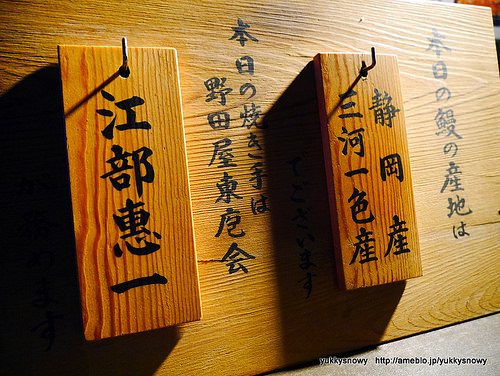 本日の鰻の産地は
静岡産
三河一色産
でございます
本日の焼き手は
野田屋東庖会
江部惠一
が務めます
yukkysnowy http://ameblo.jp/yukkysnowy